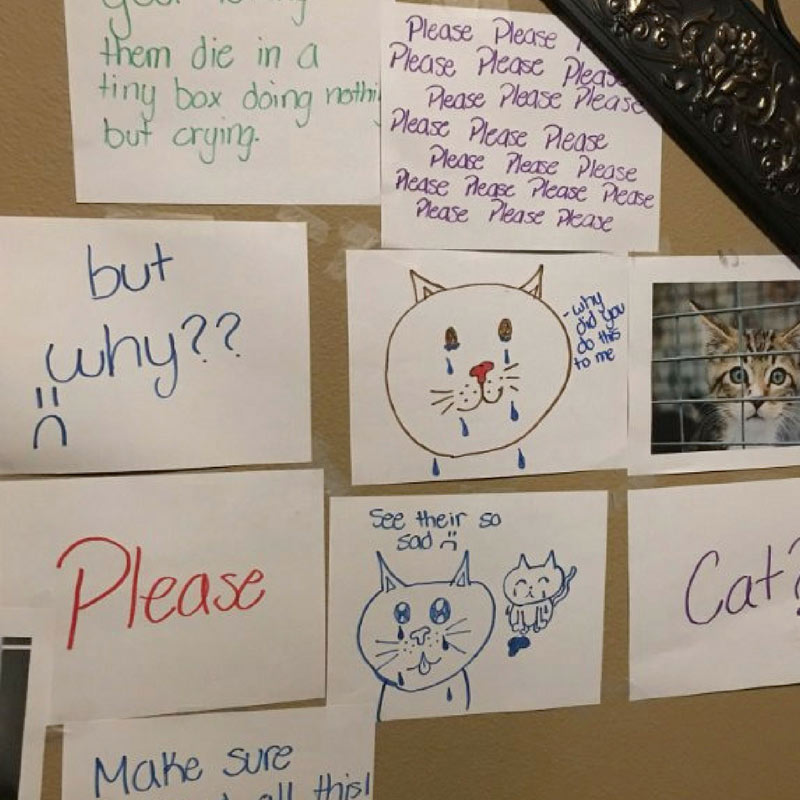 them die in a
tiny box doing
but crying.
Please Please
Please Please Please
Please Please Please
Please Please Please
Please Please Please
Please Please Please Please
Please Please Please
but
why??
:(
-why
did you
do this
to me
Please
See their so
sad :(
Cat?
Make sure
all this!